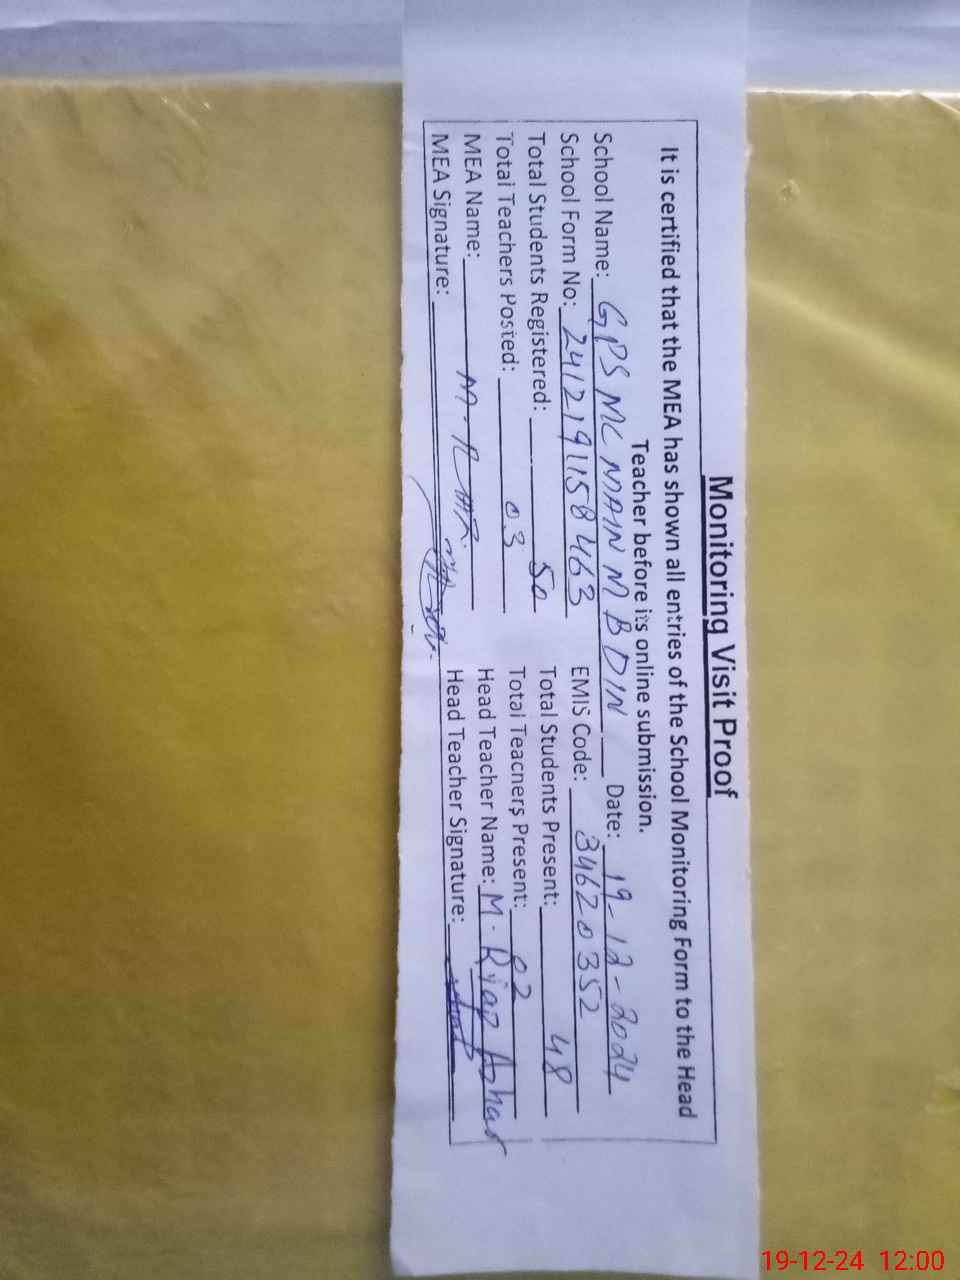 Monitoring Visit Proof
It is certified that the MEA has shown all entries of the School Monitoring Form to the Head
Teacher before its online submission.
School Name: GPS MC MAIN M B DIN Date: 19-12-2024
School Form No: 2412191158463 EMIS Code: 34620352
Total Students Registered: 50 Total Students Present: 48
Total Teachers Posted: 03 Total Teachers Present: 02
MEA Name: Head Teacher Name: M. Riaz Azhar
MEA Signature: Head Teacher Signature:
19-12-24 12:00